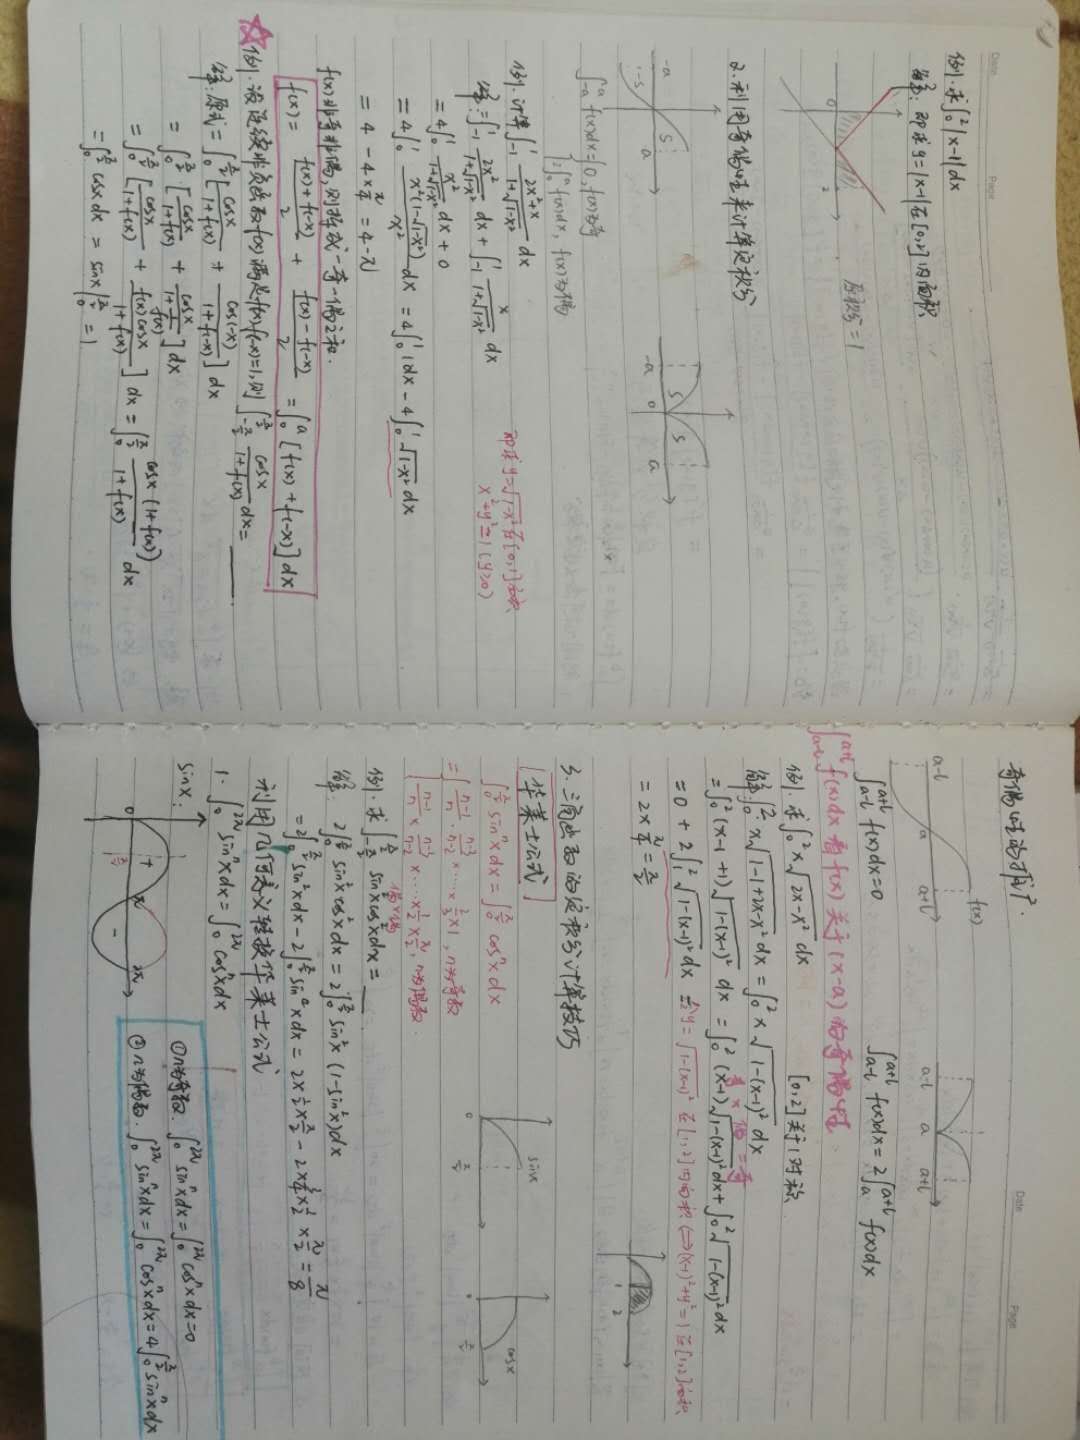 Date
Page
例.求∫₀²|x-1|dx
解:即求y=|x-1|在[0,2]内面积
0
2
原积分=1
2.利用奇偶性来计算定积分
-a
-S
S
a
-a
0
S
S
a
∫₋ₐᵃ f(x)dx={0, f(x)为奇
2∫₀ᵃ f(x)dx, f(x)为偶
例.计算∫₋₁¹ (2x²+x)/(1+√(1-x²)) dx
解:=∫₋₁¹ 2x²/(1+√(1-x²)) dx + ∫₋₁¹ x/(1+√(1-x²)) dx
=4∫₀¹ x²/(1+√(1-x²)) dx + 0
=4∫₀¹ x²(1-√(1-x²))/x² dx = 4∫₀¹ 1dx - 4∫₀¹ √(1-x²) dx
即求y=√(1-x²)在[0,1]面积
x²+y²=1 (y≥0)
= 4 - 4×π/4 = 4-π
f(x)非奇非偶,则拆成一奇一偶之和.
f(x) = (f(x)+f(-x))/2 + (f(x)-f(-x))/2 = ∫₀ᵃ [f(x)+f(-x)]dx
例.设连续非负函数f(x)满足f(x)f(-x)=1,则∫_{-π/2}^{π/2} cosx/(1+f(x)) dx=
解:原式=∫₀^{π/2} [cosx/(1+f(x)) + cos(-x)/(1+f(-x))] dx
=∫₀^{π/2} [cosx/(1+f(x)) + cosx/(1+1/f(x))] dx
=∫₀^{π/2} [cosx/(1+f(x)) + f(x)cosx/(1+f(x))] dx = ∫₀^{π/2} cosx(1+f(x))/(1+f(x)) dx
=∫₀^{π/2} cosx dx = sinx|₀^{π/2} = 1
Date
Page
奇偶性的推广.
a-b
a
a+b
f(x)
a-b
a
a+b
∫_{a-b}^{a+b} f(x)dx=0
∫_{a-b}^{a+b} f(x)dx=2∫ₐ^{a+b} f(x)dx
∫_{a-b}^{a+b} f(x)dx 看f(x)关于(x-a)的奇偶性
例.求∫₀² x√(2x-x²) dx
[0,2]关于1对称
解:∫₀² x√(1-1+2x-x²) dx = ∫₀² x√(1-(x-1)²) dx
奇×偶=奇
=∫₀² (x-1+1)√(1-(x-1)²) dx = ∫₀² (x-1)√(1-(x-1)²)dx + ∫₀² √(1-(x-1)²)dx
=0 + 2∫₁² √(1-(x-1)²) dx 令y=√(1-(x-1)²)在[1,2]内面积⇔(x-1)²+y²=1在[1,2]面积
=2×π/4=π/2
1
2
3.三角函数的定积分计算技巧
华莱士公式
∫₀^{π/2} sinⁿxdx=∫₀^{π/2} cosⁿxdx
={(n-1)/n · (n-3)/(n-2) ×……× 2/3 ×1, n为奇数
(n-1)/n × (n-3)/(n-2) ×……× 1/2 × π/2, n为偶数
0
π/2
sinx
0
π/2
cosx
例.求∫_{-π/2}^{π/2} sin²xcos²xdx=
偶×偶
解:2∫₀^{π/2} sin²xcos²xdx=2∫₀^{π/2} sin²x(1-sin²x)dx
=2∫₀^{π/2} sin²xdx-2∫₀^{π/2} sin⁴xdx=2×1/2×π/2-2×3/4×1/2×π/2=π/8
利用几何意义转换华莱士公式
1.∫₀^{2π} sinⁿxdx=∫₀^{2π} cosⁿxdx
sinx:
0
π/2
+
π
-
2π
①n为奇数.∫₀^{2π} sinⁿxdx=∫₀^{2π} cosⁿxdx=0
②n为偶数.∫₀^{2π} sinⁿxdx=∫₀^{2π} cosⁿxdx=4∫₀^{π/2} sinⁿxdx